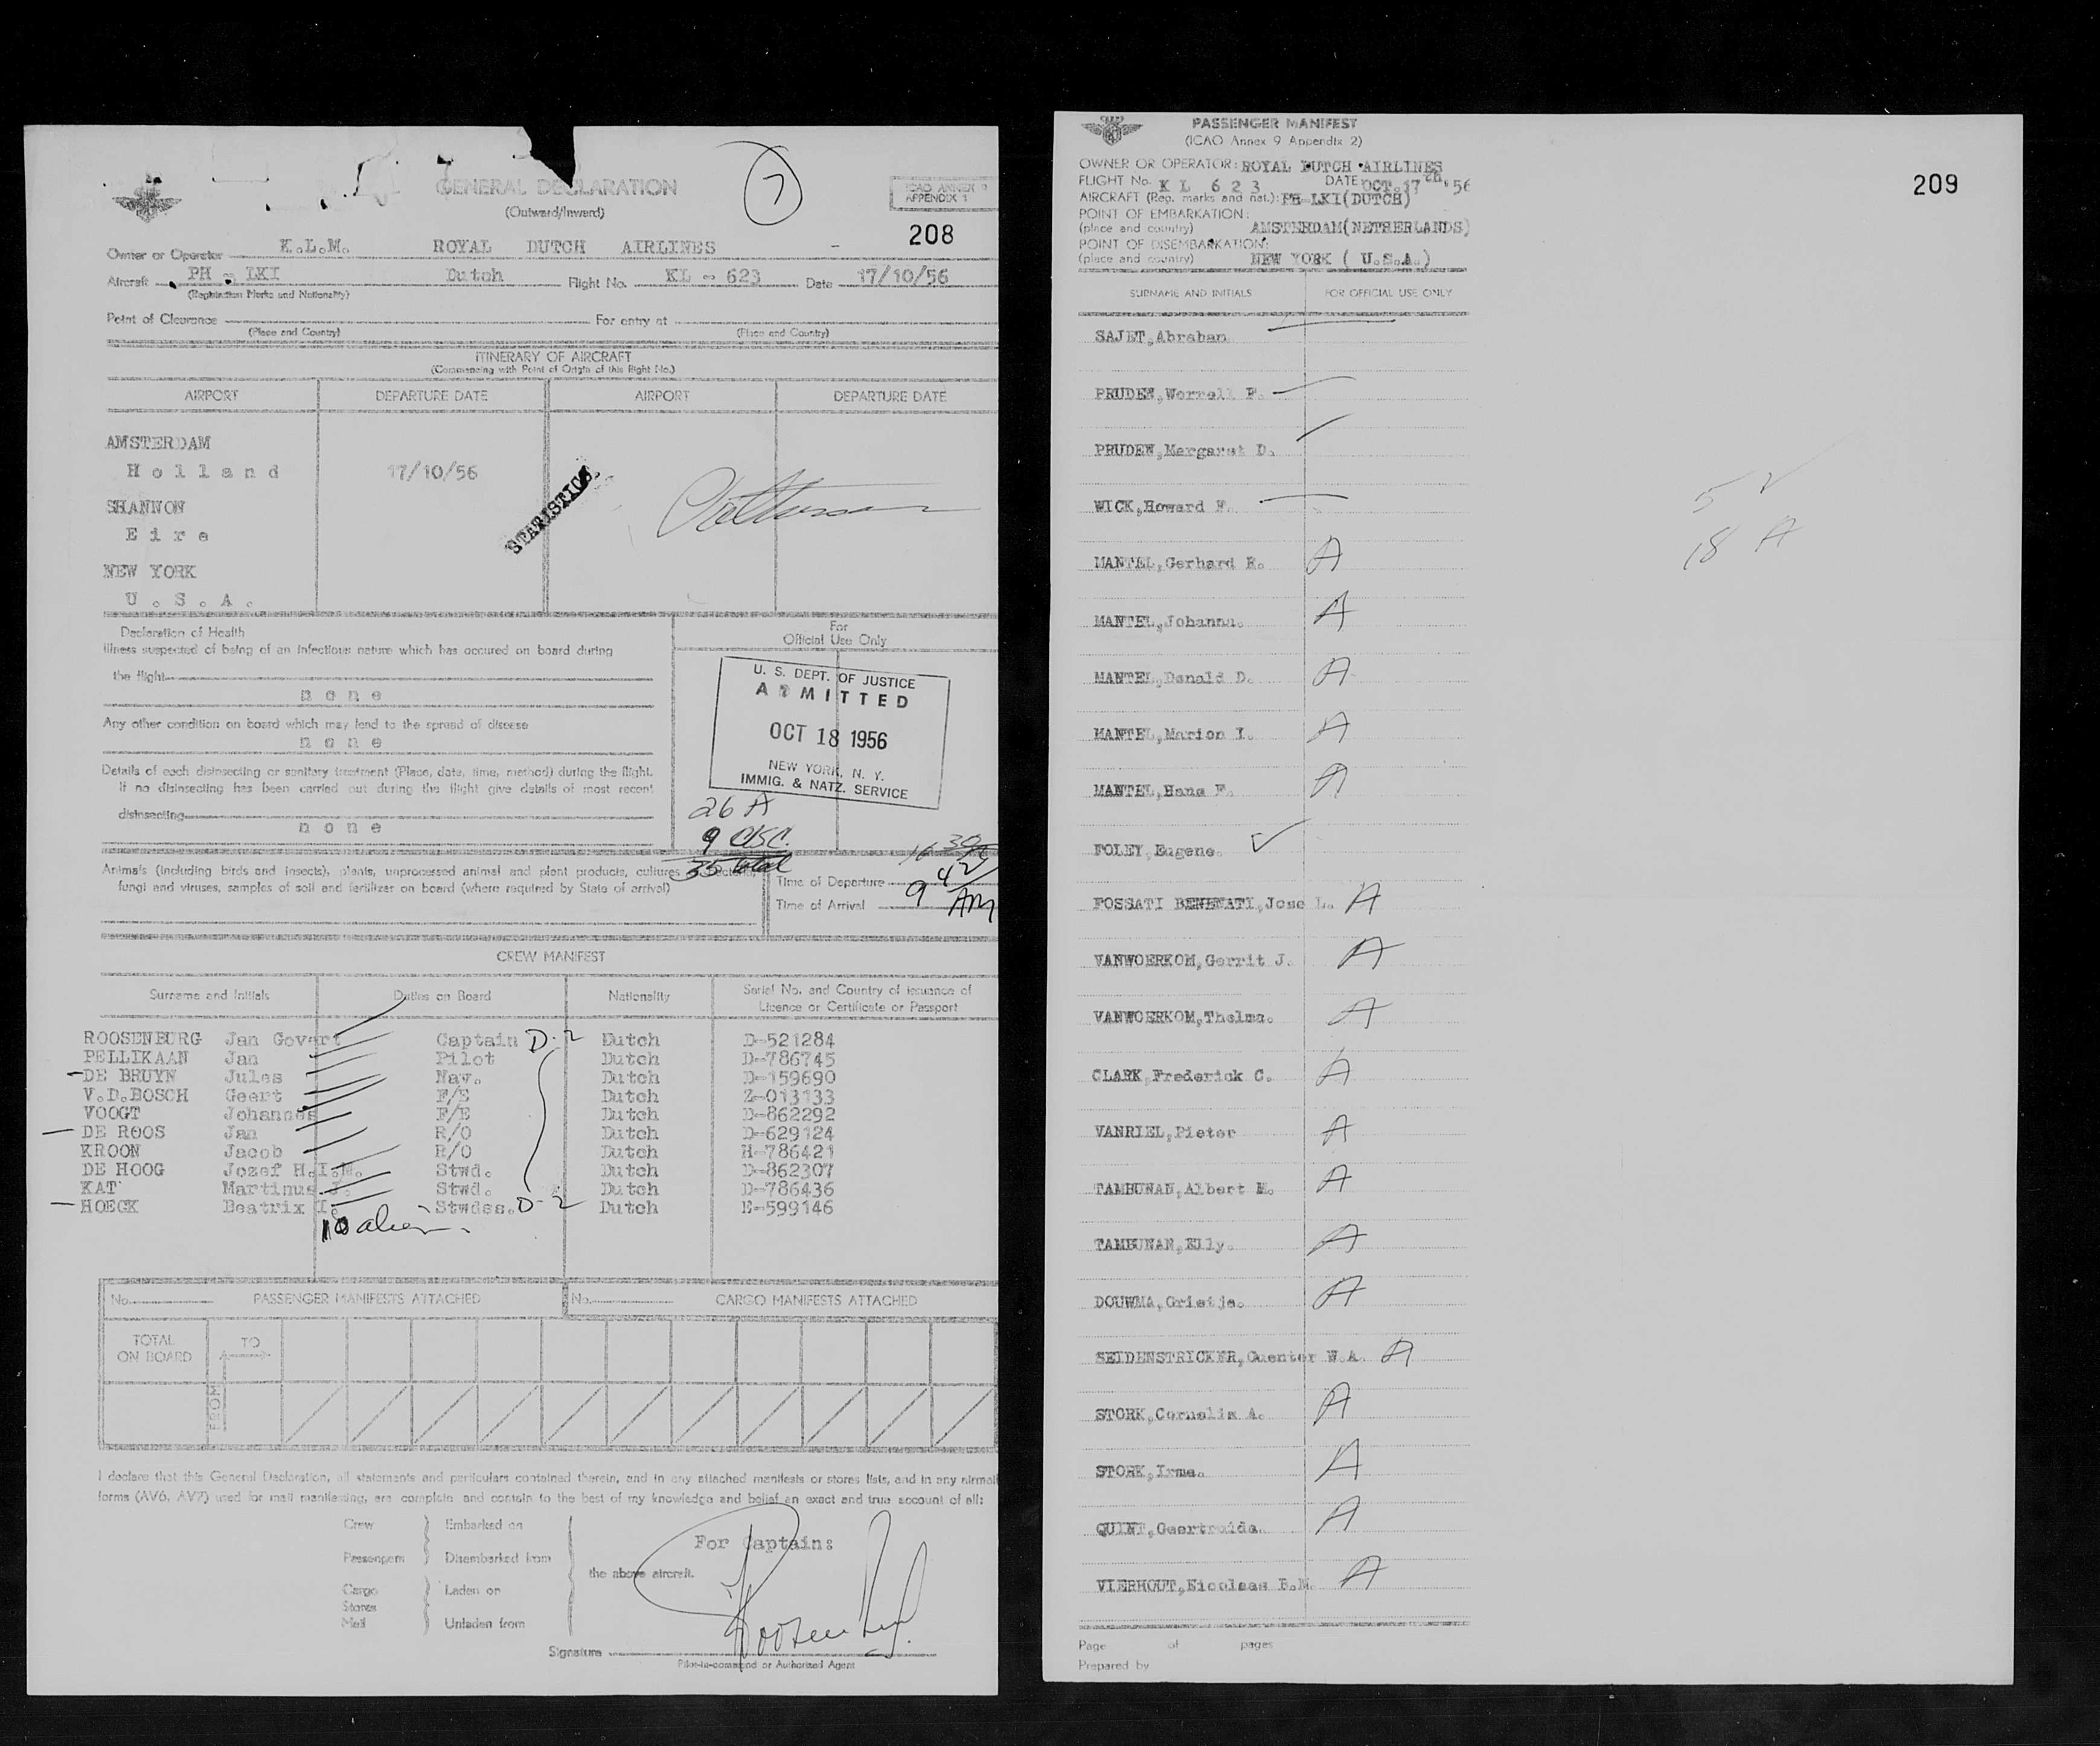 GENERAL DECLARATION
(Outward/Inward)
7
ICAO ANNEX 9
APPENDIX 1
208
Owner or Operator K.L.M. ROYAL DUTCH AIRLINES
Aircraft PH - LKI Dutch Flight No. KL - 623 Date 17/10/56
(Registration Marks and Nationality)
Point of Clearance For entry at
(Place and Country) (Place and Country)
ITINERARY OF AIRCRAFT
(Commencing with Point of Origin of this flight No.)
AIRPORT DEPARTURE DATE AIRPORT DEPARTURE DATE
AMSTERDAM
Holland 17/10/56
STATISTICS
SHANNON
Eire
NEW YORK
U.S.A.
Declaration of Health
Illness suspected of being of an infectious nature which has occured on board during
the flight
none
Any other condition on board which may lend to the spread of disease
none
Details of each disinsecting or sanitary treatment (Place, date, time, method) during the flight.
If no disinsecting has been carried out during the flight give details of most recent
disinsecting
none
For
Official Use Only
U. S. DEPT. OF JUSTICE
ADMITTED
OCT 18 1956
NEW YORK, N. Y.
IMMIG. & NATZ. SERVICE
26 A
9 USC.
35 total
Animals (including birds and insects), plants, unprocessed animal and plant products, cultures of bacteria,
fungi and viruses, samples of soil and fertilizer on board (where required by State of arrival)
Time of Departure
Time of Arrival 9 42 AM
CREW MANIFEST
Surname and Initials Duties on Board Nationality Serial No. and Country of issuance of
Licence or Certificate or Passport
ROOSENBURG Jan Govert Captain D-2 Dutch D-521284
PELLIKAAN Jan Pilot Dutch D-786745
DE BRUYN Jules Nav. Dutch D-159690
V.D.BOSCH Geert F/E Dutch Z-013133
VOOGT Johannes F/E Dutch D-862292
DE ROOS Jan R/O Dutch D-629124
KROON Jacob R/O Dutch H-786421
DE HOOG Jozef H.I.M. Stwd. Dutch D-862307
KAT Martinus J. Stwd. Dutch D-786436
HOECK Beatrix I. Stwdes. D-2 Dutch E-599146
10 alien
No. PASSENGER MANIFESTS ATTACHED No. CARGO MANIFESTS ATTACHED
TOTAL
ON BOARD
TO
FROM
I declare that this General Declaration, all statements and particulars contained therein, and in any attached manifests or stores lists, and in any airmail
forms (AV6, AV7) used for mail manifesting, are complete and contain to the best of my knowledge and belief an exact and true account of all:
Crew Embarked on
Passengers Disembarked from
Cargo Laden on
Stores
Mail Unladen from
the above aircraft.
For Captain:
Roosenburg
Signature
Pilot-in-command or Authorized Agent
PASSENGER MANIFEST
(ICAO Annex 9 Appendix 2)
209
OWNER OR OPERATOR: ROYAL DUTCH AIRLINES
FLIGHT No. KL 623 DATE OCT.17th,'56
AIRCRAFT (Reg. marks and nat.): PH-LKI(DUTCH)
POINT OF EMBARKATION:
(place and country) AMSTERDAM(NETHERLANDS)
POINT OF DISEMBARKATION:
(place and country) NEW YORK ( U.S.A.)
SURNAME AND INITIALS FOR OFFICIAL USE ONLY
SAJET,Abraham
PRUDEN,Worrell F.
PRUDEN,Margaret D.
WICK,Howard F.
MANTEL,Gerhard E. A
MANTEL,Johanna. A
MANTEL,Donald D. A
MANTEL,Marion I. A
MANTEL,Hans F. A
FOLEY,Eugene.
FOSSATI BENENATI,Jose L. A
VANWOERKOM,Gerrit J. A
VANWOERKOM,Thelma. A
CLARK,Frederick C. A
VANRIEL,Pieter A
TAMBUNAN,Albert M. A
TAMBUNAN,Elly. A
DOUWMA,Grietje. A
SEIDENSTRICKER,Guenter W.A. A
STORK,Cornelis A. A
STORK,Irma. A
QUINT,Geertruida. A
VIERHOUT,Nicolaas B.M. A
5 ✓
18 A
Page of pages
Prepared by